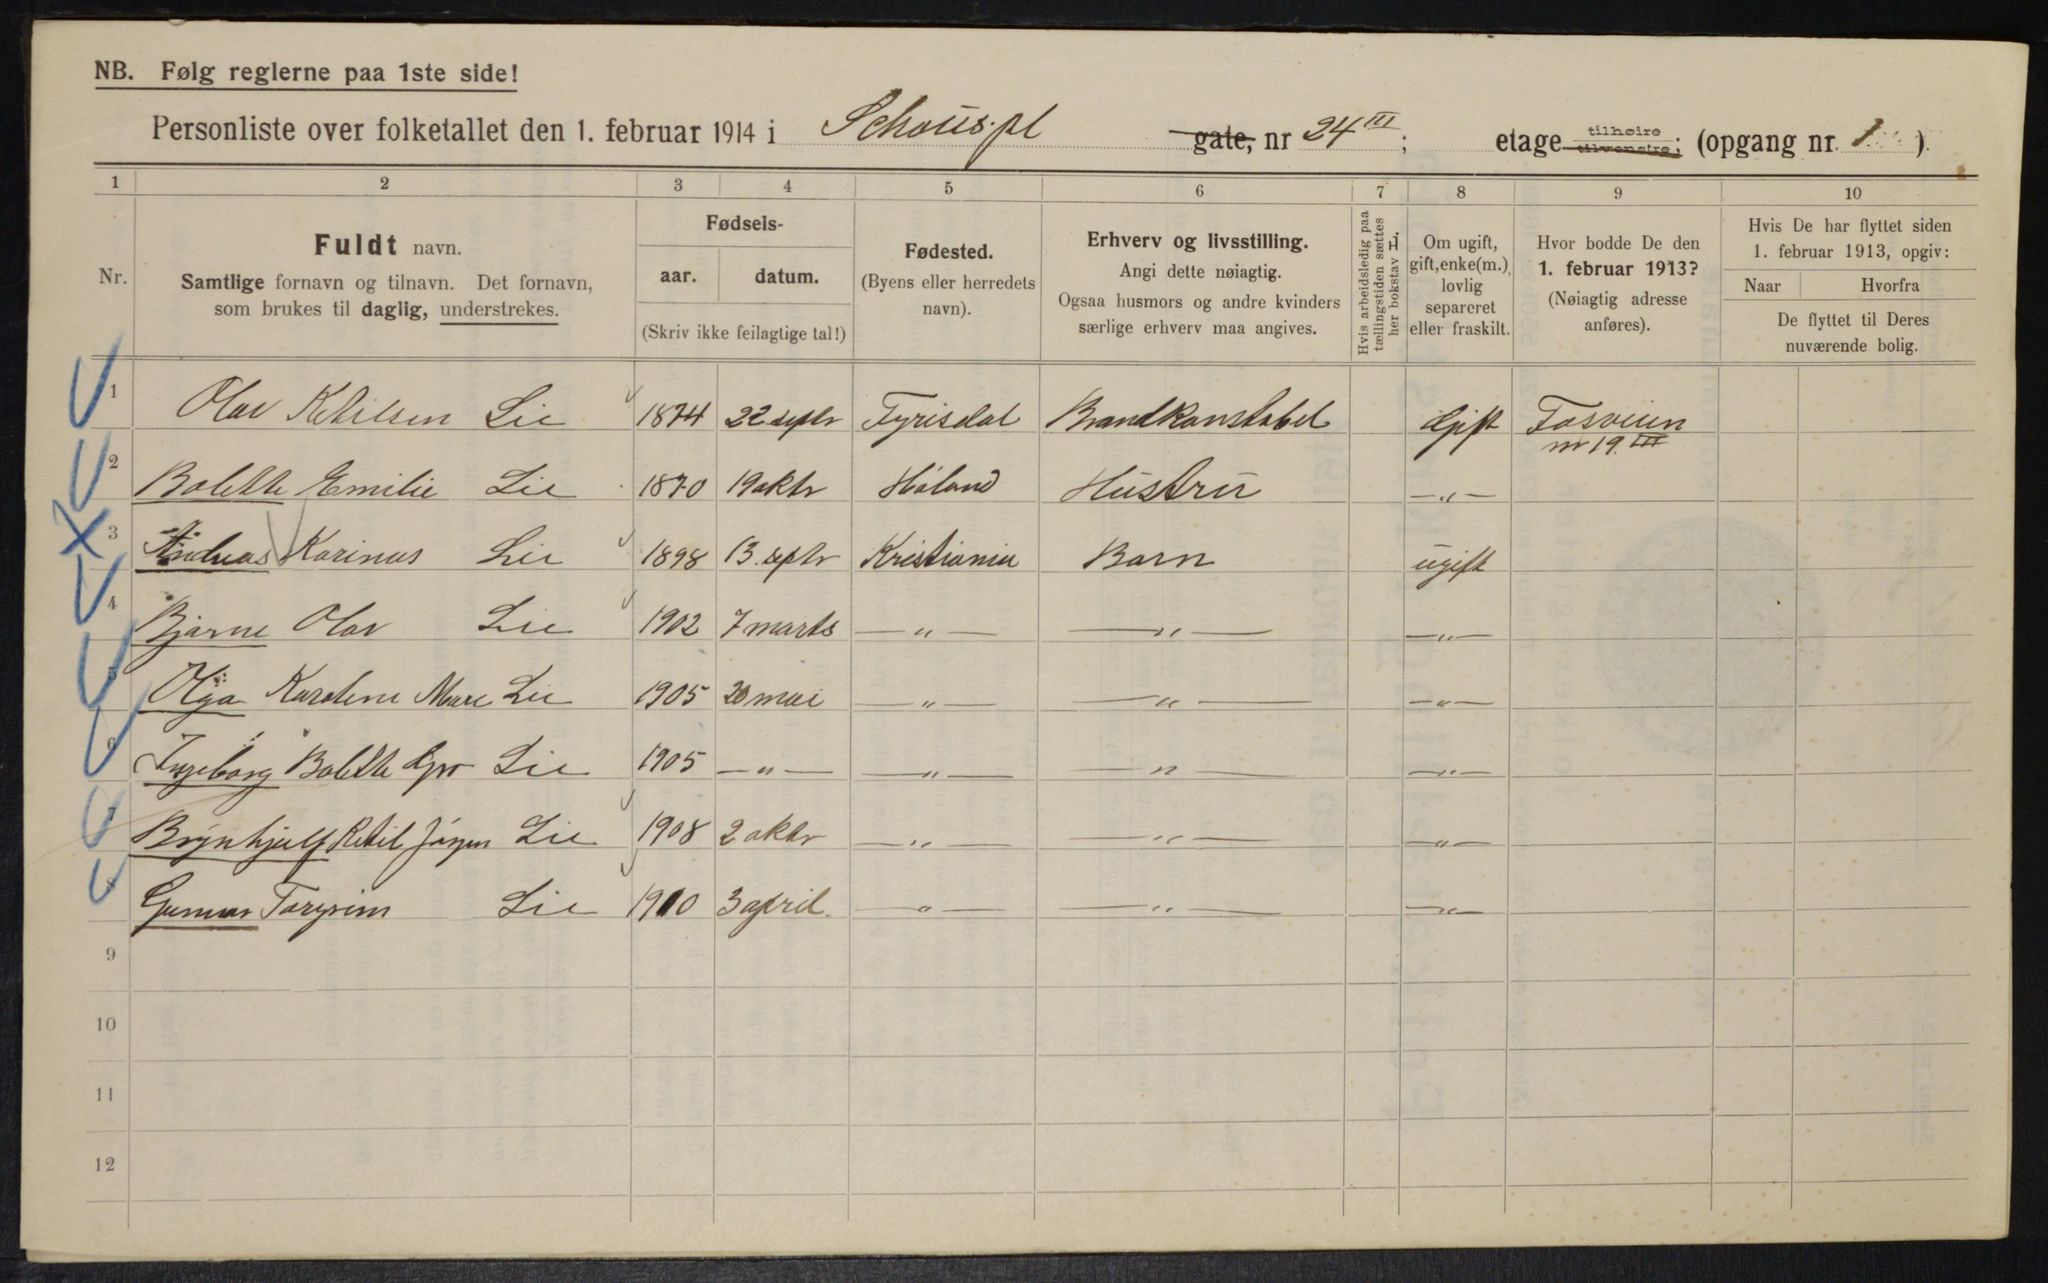 NB. Følg reglerne paa 1ste side!
Personliste over folketallet den 1. februar 1914 i Schous.pl gate, nr 24 III; etage tilhøire tilvenstre; (opgang nr. 1)
1 2 3 4 5 6 7 8 9 10
Nr.
Fuldt navn.
Samtlige fornavn og tilnavn. Det fornavn,
som brukes til daglig, understrekes.
Fødsels-
aar. datum.
(Skriv ikke feilagtige tal!)
Fødested.
(Byens eller herredets
navn).
Erhverv og livsstilling.
Angi dette nøiagtig.
Ogsaa husmors og andre kvinders
særlige erhverv maa angives.
Hvis arbeidsledig paa
tællingstiden sættes
her bokstav L.
Om ugift,
gift, enke(m.),
lovlig
separeret
eller fraskilt.
Hvor bodde De den
1. februar 1913?
(Nøiagtig adresse
anføres).
Hvis De har flyttet siden
1. februar 1913, opgiv:
Naar Hvorfra
De flyttet til Deres
nuværende bolig.
1 Olav Ketilsen Lie 1874 22 septr Tyrisdal Brandkonstabel Gift Tosveien
nr 19. III
2 Bolette Emilie Lie 1870 19 oktr Høland Hustru —"—
3 Andreas Karinus Lie 1898 13. septr Kristiania Barn ugift
4 Bjarne Olav Lie 1902 7 marts —"— —"— —"—
5 Olga Karoline Marie Lie 1905 20 mai —"— —"— —"—
6 Ingeborg Bolette Gro Lie 1905 —"— —"— —"— —"—
7 Brynhjulf Ketil Jørgen Lie 1908 2 oktr —"— —"— —"—
8 Gunnar Torgrim Lie 1910 3 april. —"— —"— —"—
9
10
11
12